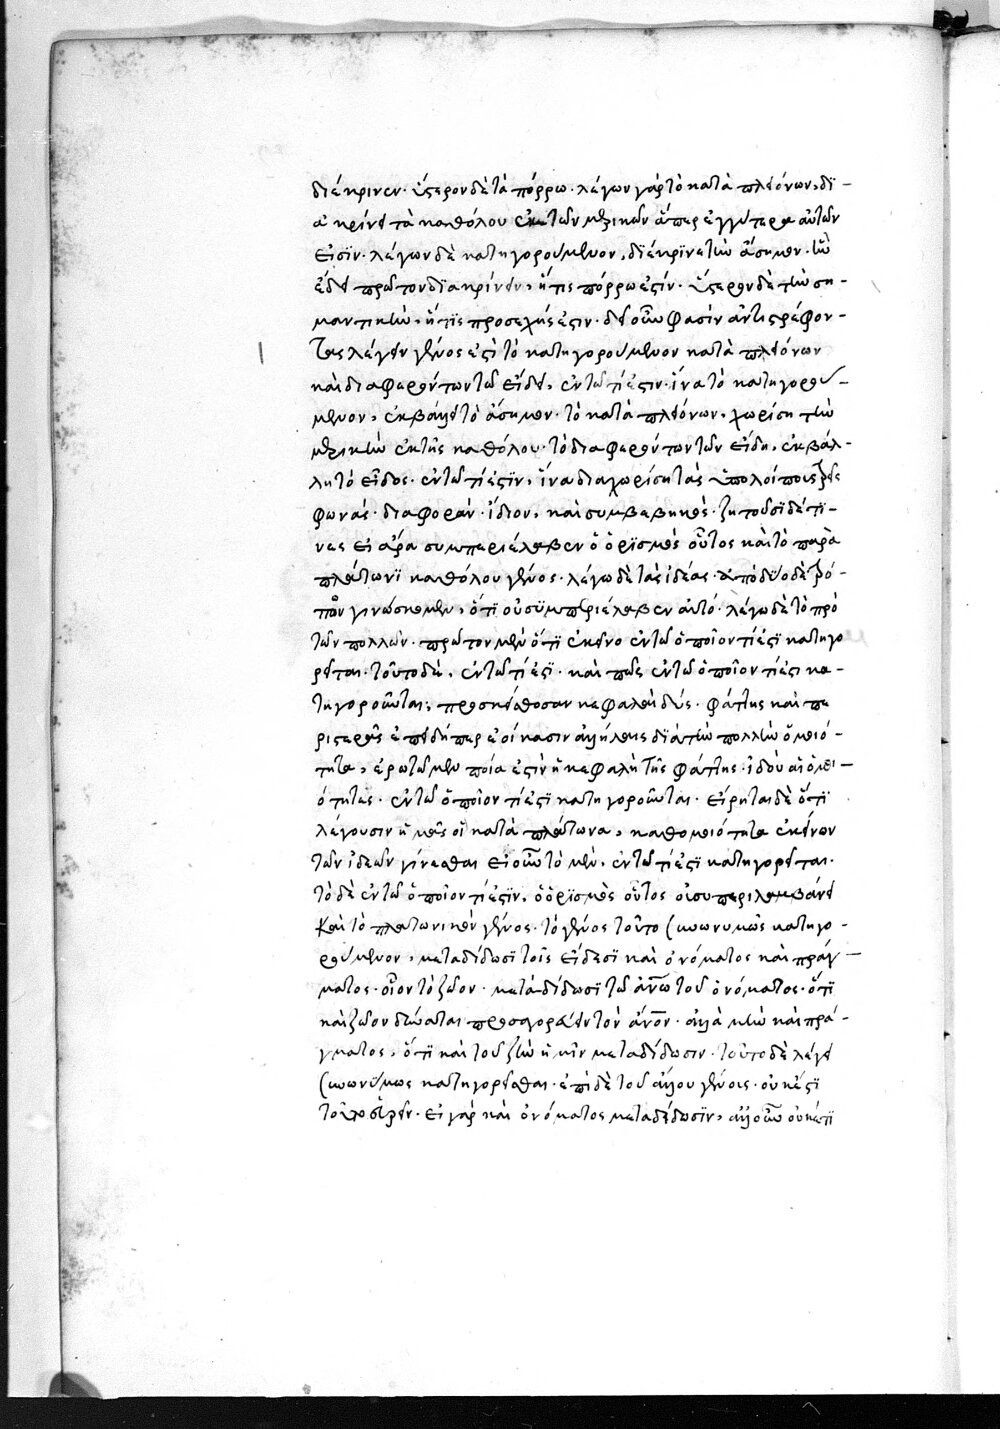 διέκρινεν· ὕστερον δὲ τὰ πόρρω· λέγων γὰρ τὸ κατὰ πλειόνων, δϊ-
έκρινε τὰ καθόλου ἐκ τῶν μερικῶν ἅπερ ἐγγύτερα αὐτῶν
εἰσϊν· λέγων δὲ κατηγορούμενον, δϊέκρϊνε τὴν ἄσημον· ἣν
ἔδει πρῶτον δϊακρίνειν, ἥτις πόρρω ἐστίν· ὕστερον δὲ τὴν ση-
μαντικὴν, ἥτϊς προσεχής ἐστιν· δεῖ οὖν φασὶν ἀντιστρέφον-
τας λέγειν γένος ἐστὶ τὸ κατηγορούμενον κατὰ πλειόνων
καὶ διαφερόντων τῶ εἴδει, ἐν τῶ τί ἐστιν· ἵνα τὸ κατηγορού-
μενον, ἐκβάλη τὸ ἄσημον· τὸ κατὰ πλειόνων, χωρίση τὴν
μερικὴν ἐκ τῆς καθόλου· τὸ διαφερόντων τῶν εἴδη, ἐκβάλ-
λη τὸ εἶδος· ἐν τῶ τί ἐστϊν, ἵνα διαχωρίση τὰς ὑπολοίπους τρεῖς
φωνάς· διαφοράν· ἴδιον, καὶ συμβεβηκός· ζητοῦσϊ δέ τϊ-
νες εἰ ἄρα συμπεριέλαβεν ὁ ὁρϊσμὸς οὗτος καὶ τὸ παρὰ
πλάτωνϊ καθόλου γένος· λέγω δὲ τὰς ἰδέας· ἀπὸ δύο δὲ τρό-
πων γινώσκομεν, ὅτϊ οὐ συμπεριέλαβεν αὐτό· λέγω δὲ τὸ πρὸ
τῶν πολλῶν· πρῶτον μὲν ὅτϊ ἐκεῖνο ἐν τῶ ὁποῖον τί ἐστϊ κατηγο
ρεῖται· τοῦτο δὲ, ἐν τῶ τί ἐστϊ· καὶ πῶς ἐν τῶ ὁποῖον τί ἐστι κα-
τηγοροῦνται, προσκείσθωσαν κεφαλαὶ δύο· φάττης καὶ πε
ριστερᾶς ἐπειδήπερ ἐοίκασιν ἀλλήλαις δϊὰ τὴν πολλὴν ὁμοιό-
τητα, ἐρωτῶμεν ποία ἐστὶν ἡ κεφαλὴ τῆς φάττης· ἰδοὺ αἱ ὁμοι-
ότητες· ἐν τῶ ὁποῖον τί ἐστϊ κατηγοροῦνται· εἴρηται δὲ ὅτϊ
λέγουσιν ἡμᾶς οἱ κατὰ πλάτωνα, καθ' ὁμοιότητα ἐκείνων
τῶν ἰδεῶν γίνεσθαι εἰ οὖν τὸ μὲν, ἐν τῶ τί ἐστϊ κατηγορεῖται·
τὸ δὲ ἐν τῶ ὁποῖον τί ἐστϊν, ὁ ὁρϊσμὸς οὗτος οὐ συμπεριλαμβάνει
Καὶ τὸ πλατωνικὸν γένος· τὸ γένος τοῦτο συνωνύμως κατηγο-
ρούμενον, μεταδίδωσϊ τοῖς εἴδεσϊ καὶ ὀνόματος καὶ πράγ-
ματος· οἷον τὸ ζῶον· μεταδίδωσϊ τῶ ἀνω τοῦ ὀνόματος· ὅτϊ
καὶ ζῶον δύναται προσαγορεύειν τὸν ἀνον· ἀλλὰ μὴν καὶ πρά-
γματος, ὅτϊ καὶ τοῦ ζῆν ἡμῖν μεταδίδωσιν· τοῦτο δὲ λέγει
συνωνύμως κατηγορεῖσθαι· ἐπὶ δὲ τοῦ ἄλλου γένους· οὐκ ἔστϊ
τοῦτο εὑρεῖν· εἰ γὰρ καὶ ὀνόματος μεταδίδωσϊν, ἀλλ' οὖν οὐκέτϊ